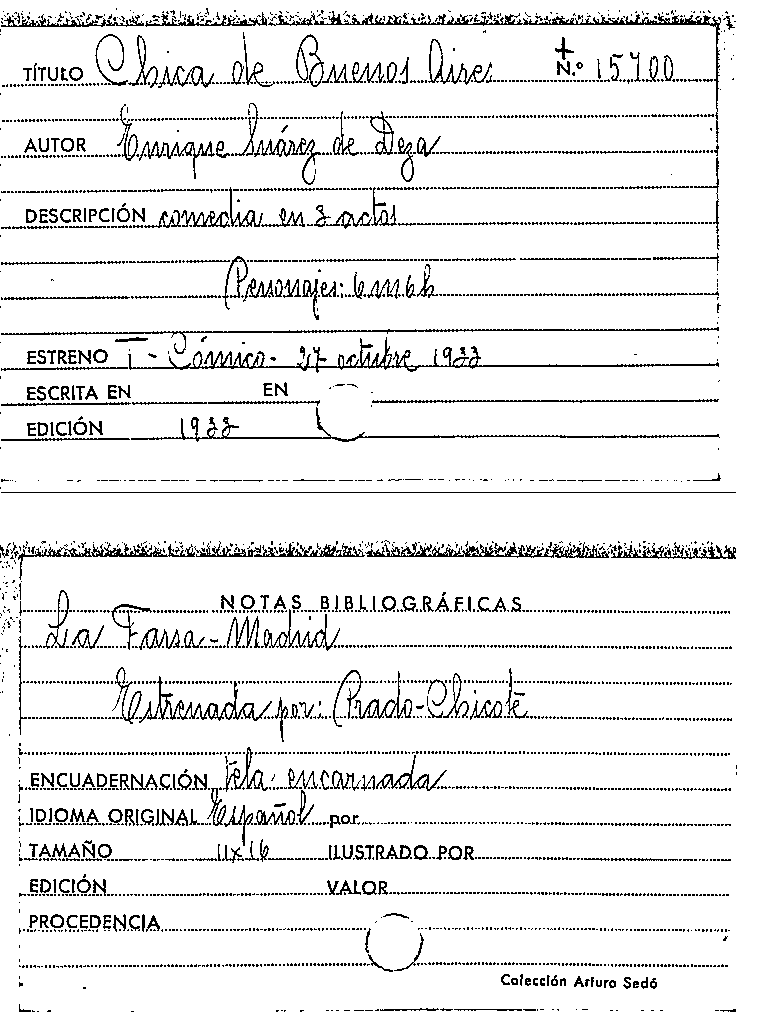 TÍTULO Chica de Buenos Aires + N.º 15700
AUTOR Enrique Suárez de Deza
DESCRIPCIÓN comedia en 3 actos
Personajes: 6m6h
ESTRENO T - Cómico - 27 octubre 1933
ESCRITA EN EN
EDICIÓN 1933
NOTAS BIBLIOGRÁFICAS
La Farsa - Madrid
Estrenada por: Prado-Chicote
ENCUADERNACIÓN tela encarnada
IDIOMA ORIGINAL Español por
TAMAÑO 11x16 ILUSTRADO POR
EDICIÓN VALOR
PROCEDENCIA
Colección Arturo Sedó